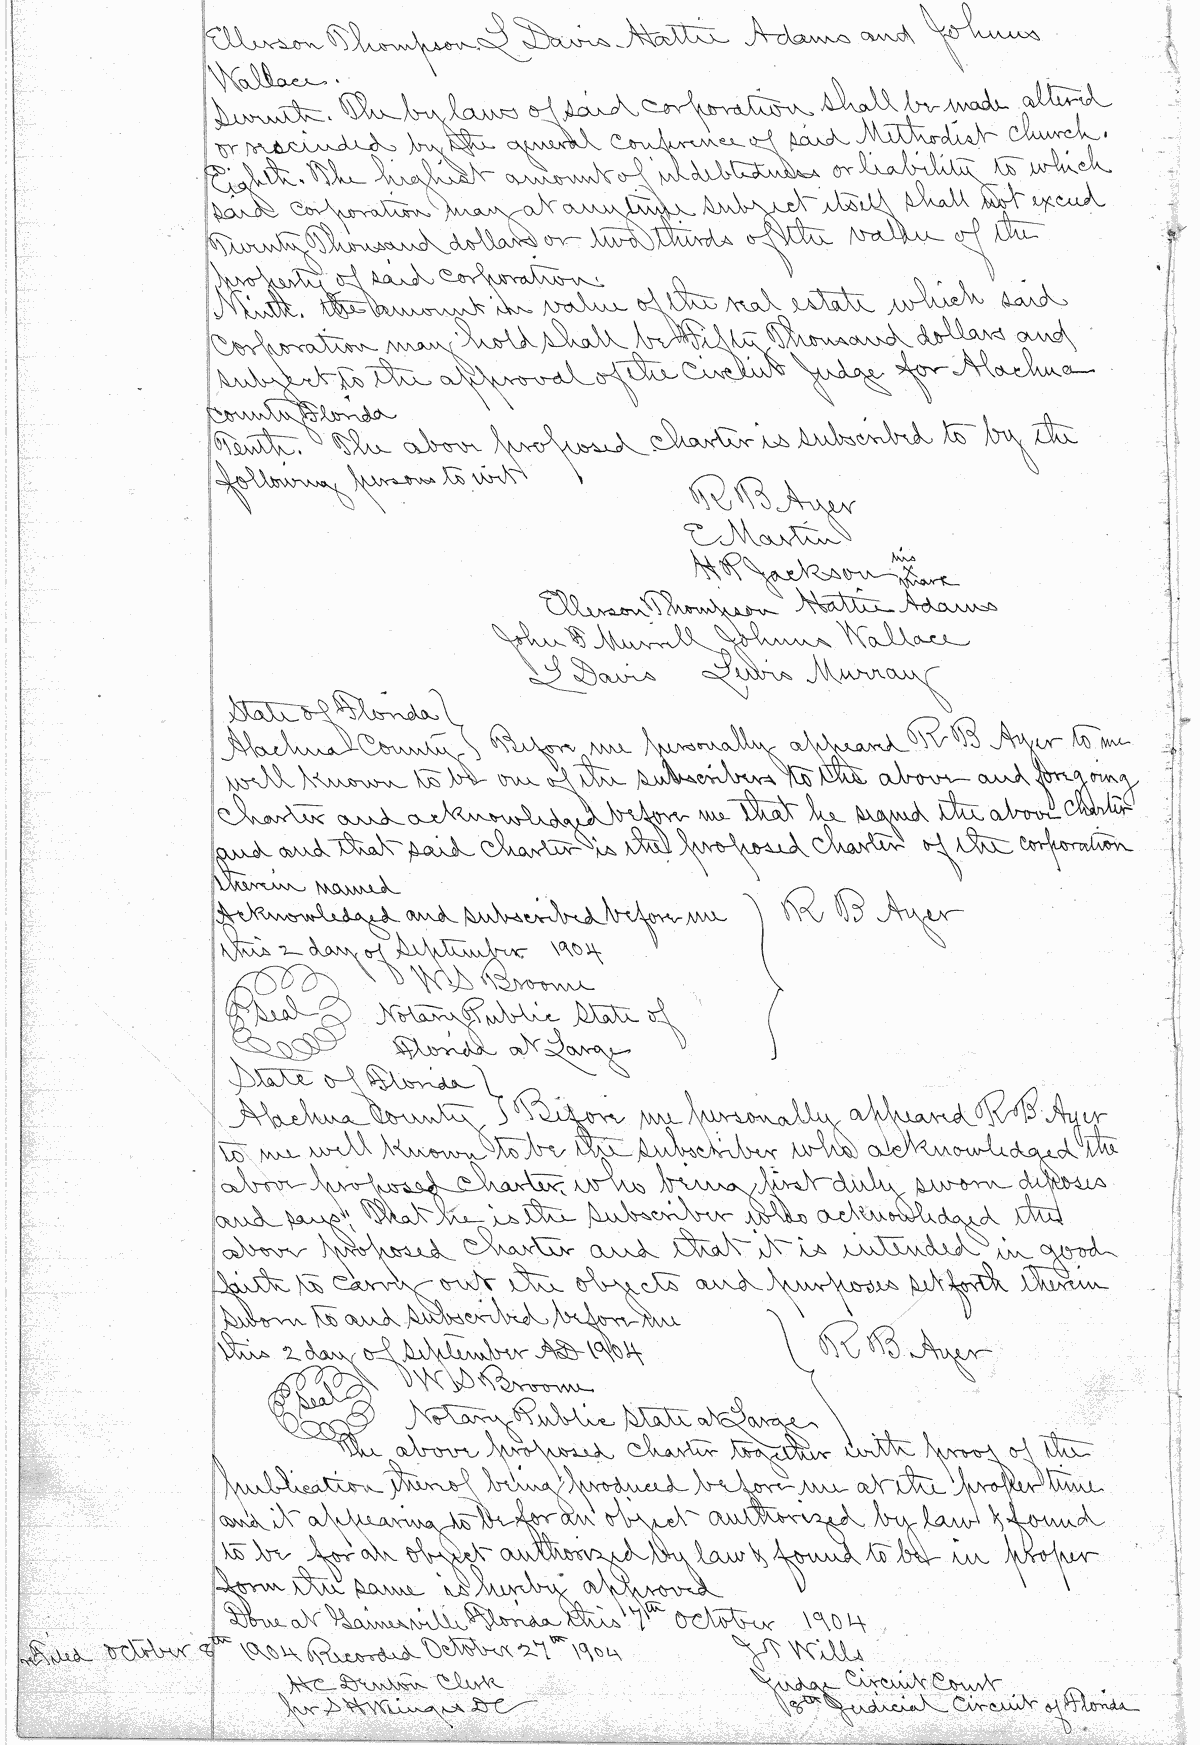 Ellerson Thompson L Davis Hattie Adams and Johnus
Wallace.
Seventh. The by laws of said corporation shall be made altered
or rescinded by the general conference of said Methodist church.
Eighth. The highest amount of indebtedness or liability to which
said corporation may at any time subject itself shall not exceed
Twenty Thousand dollars or two thirds of the value of the
property of said corporation.
Ninth. the amount in value of the real estate which said
Corporation may hold shall be Fifty Thousand dollars and
subject to the approval of the Circuit Judge for Alachua
county Florida
Tenth. The above proposed charter is subscribed to by the
following persons to wit
R B Ayer
E Martin
H P Jackson his mark
Ellerson Thompson Hattie Adams
John F Murrill Johnus Wallace
L Davis Lewis Murray
State of Florida }
Alachua County } Before me personally appeared R B Ayer to me
well known to be one of the subscribers to the above and foregoing
Charter and acknowledged before me that he signed the above Charter
and and that said charter is the proposed charter of the corporation
therein named
Acknowledged and subscribed before me } R B Ayer
this 2 day of September 1904
W S Broome
Seal Notary Public State of
Florida at Large
State of Florida }
Alachua County } Before me personally appeared R B Ayer
to me well known to be the subscriber who acknowledged the
above proposed charter, who being first duly sworn deposes
and says". That he is the subscriber who acknowledged the
above proposed charter and that it is intended in good
faith to carry out the objects and purposes set forth therein
Sworn to and subscribed before me
this 2 day of September AD 1904 } R B Ayer
W S Broome
Seal Notary Public State at Large
The above proposed charter together with proof of the
publication thereof being produced before me at the proper time
and it appearing to be for an object authorized by law & found
to be for an object authorized by law & found to be in proper
form the same is hereby approved
Done at Gainesville Florida this 7th October 1904
Filed October 8th 1904 Recorded October 27th 1904 J T Wills
H C Denton Clerk Judge Circuit Court
per S H Wienges DC 8th Judicial Circuit of Florida